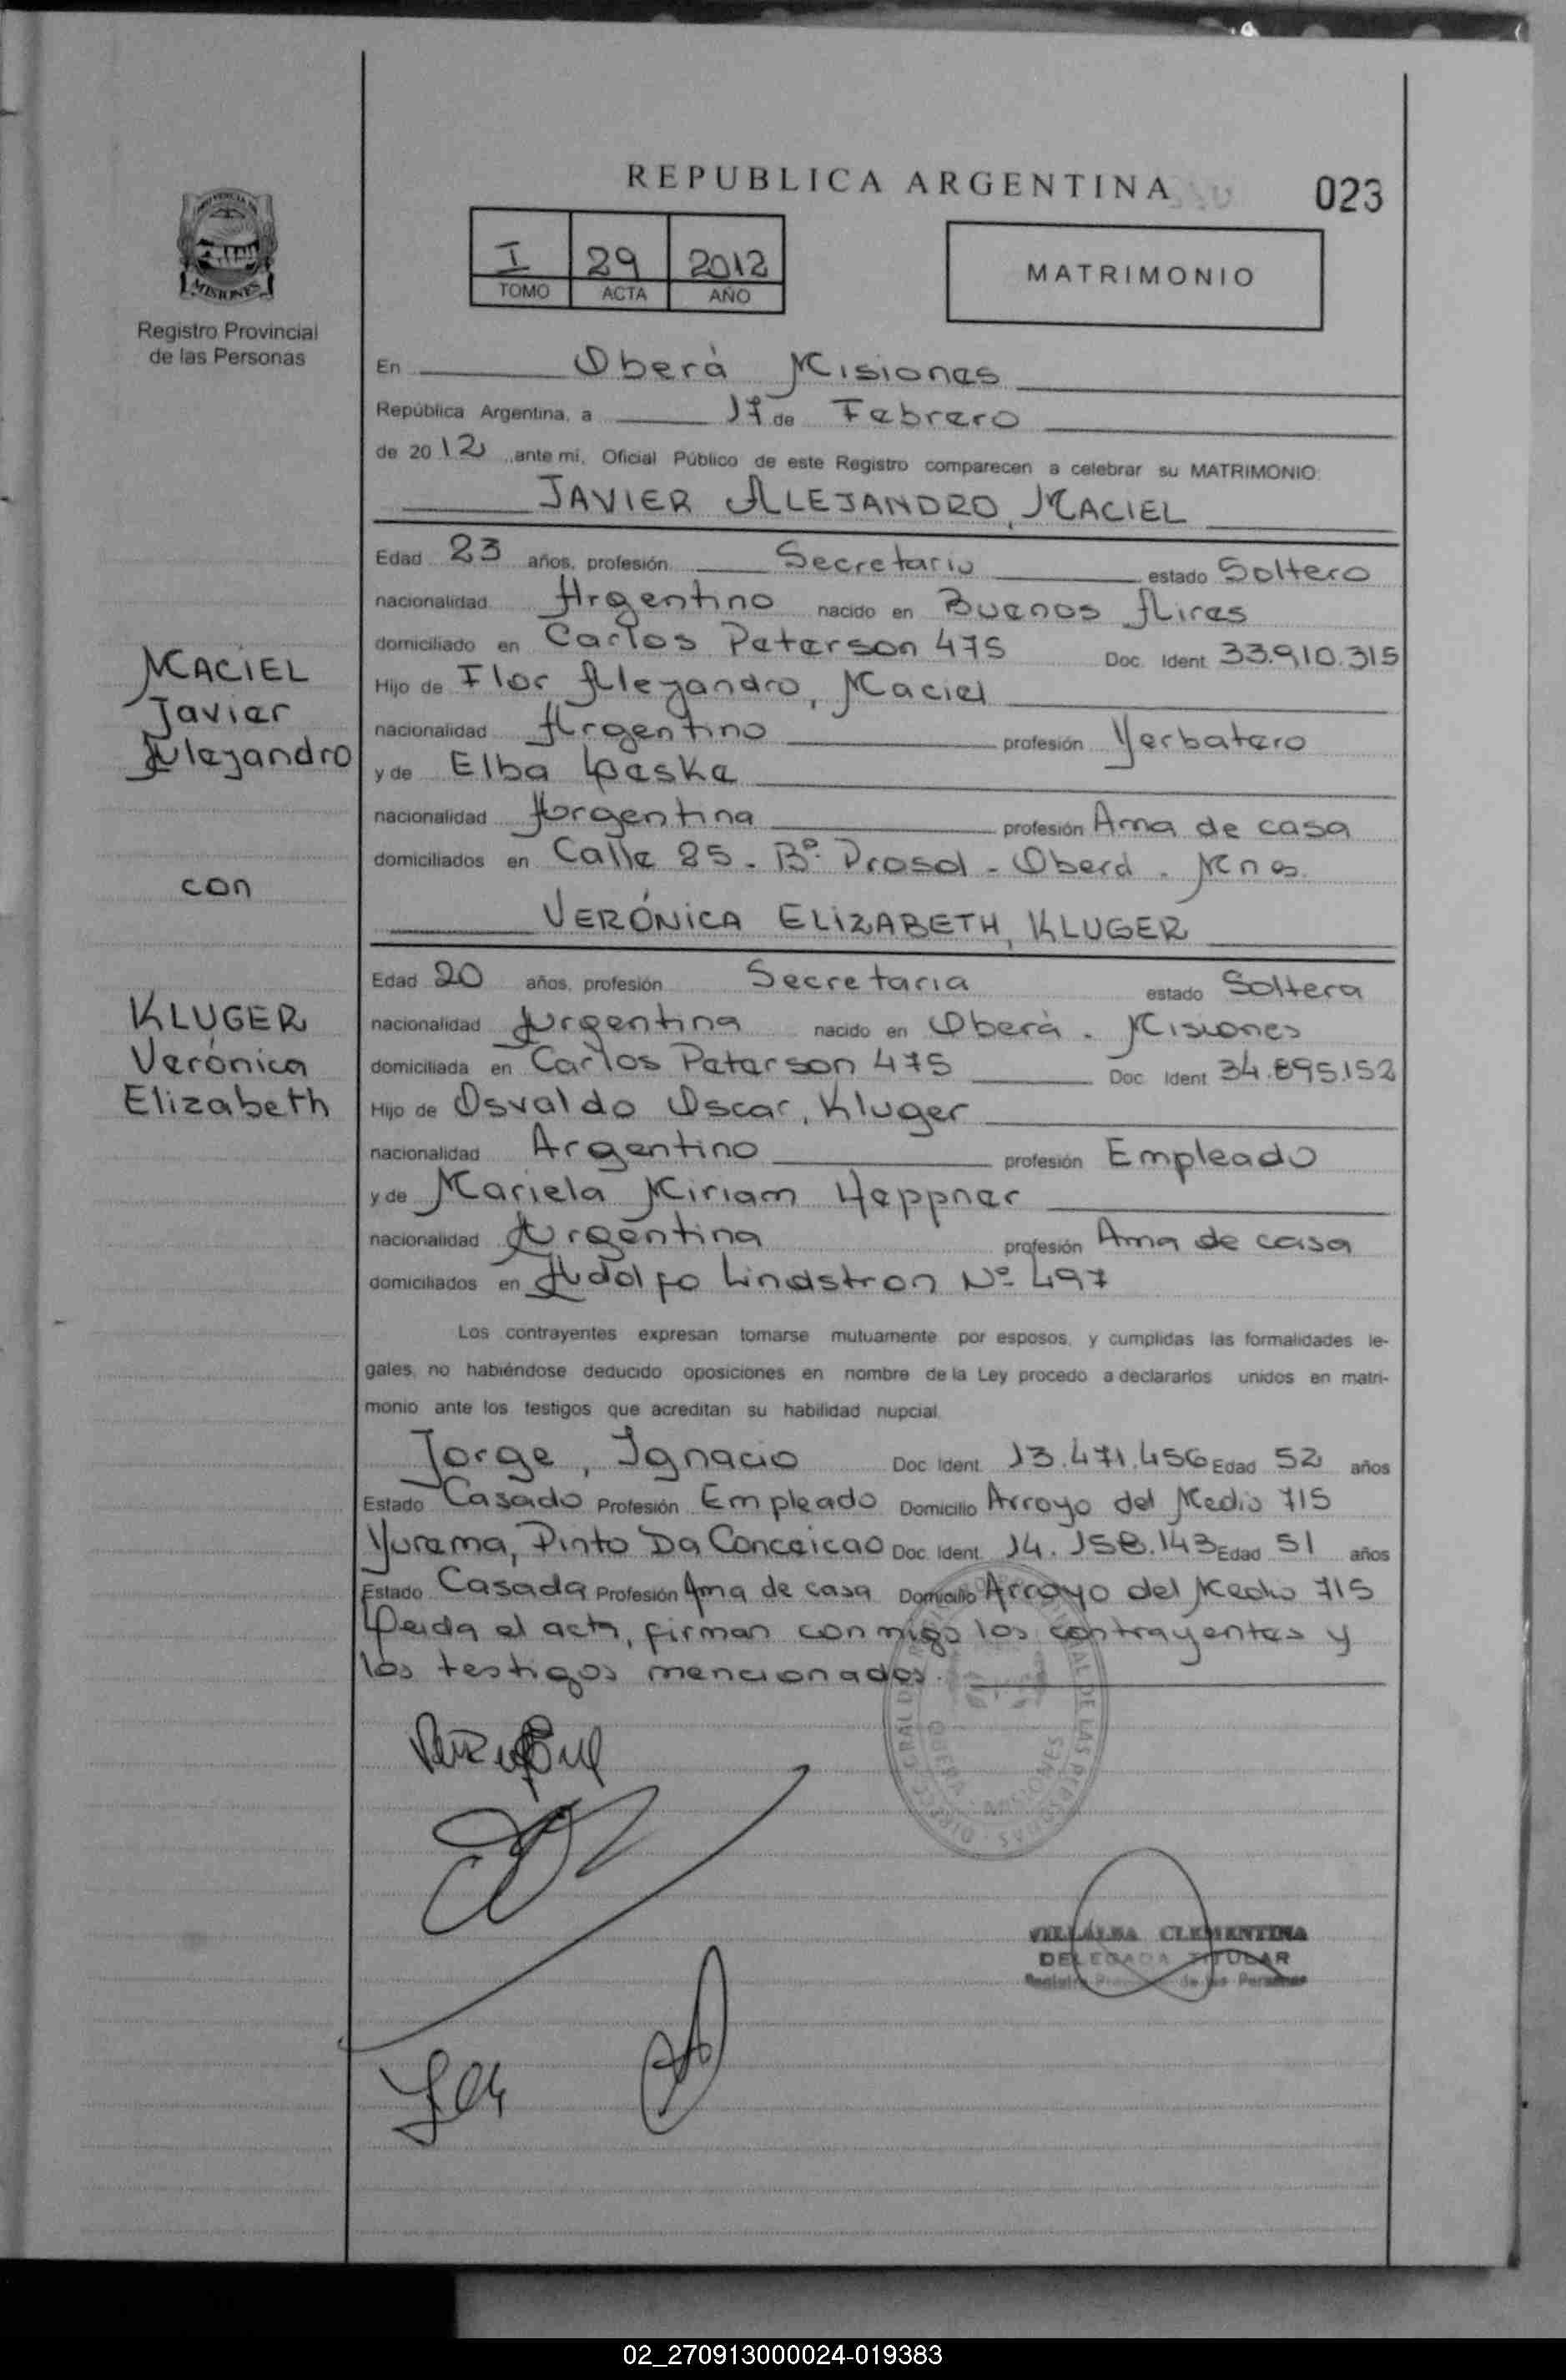 REPUBLICA ARGENTINA
023
MISIONES
Registro Provincial
de las Personas
I 29 2012
TOMO ACTA AÑO
MATRIMONIO
En Oberá Misiones
República Argentina, a 17 de Febrero
de 2012, ante mí, Oficial Público de este Registro comparecen a celebrar su MATRIMONIO:
JAVIER ALEJANDRO, MACIEL
Edad 23 años, profesión Secretario estado Soltero
nacionalidad Argentino nacido en Buenos Aires
domiciliado en Carlos Peterson 475 Doc. Ident. 33.910.315
MACIEL
Javier
Alejandro
Hijo de Flor Alejandro, Maciel
nacionalidad Argentino profesión Yerbatero
y de Elba Leske
nacionalidad Argentina profesión Ama de casa
domiciliados en Calle 25 - Bº Prosol - Oberá - Mnes.
con
VERÓNICA ELIZABETH, KLUGER
Edad 20 años, profesión Secretaria estado Soltera
nacionalidad Argentina nacido en Oberá - Misiones
domiciliada en Carlos Peterson 475 Doc. Ident. 34.895.152
KLUGER
Verónica
Elizabeth
Hijo de Osvaldo Oscar, Kluger
nacionalidad Argentino profesión Empleado
y de Mariela Miriam Heppner
nacionalidad Argentina profesión Ama de casa
domiciliados en Adolfo Lindstron Nº 497
Los contrayentes expresan tomarse mutuamente por esposos, y cumplidas las formalidades le-
gales, no habiéndose deducido oposiciones en nombre de la Ley procedo a declararlos unidos en matri-
monio ante los testigos que acreditan su habilidad nupcial.
Jorge, Ignacio Doc. Ident. 13.471.456 Edad 52 años
Estado Casado Profesión Empleado Domicilio Arroyo del Medio 715
Yurema, Pinto Da Conceicao Doc. Ident. 14.158.143 Edad 51 años
Estado Casada Profesión Ama de casa Domicilio Arroyo del Medio 715
Leida el acta, firman conmigo los contrayentes y
los testigos mencionados.
OBERA MISIONES
VILLALBA CLEMENTINA
DELEGADA TITULAR
Registro Provincial de las Personas
02_270913000024-019383